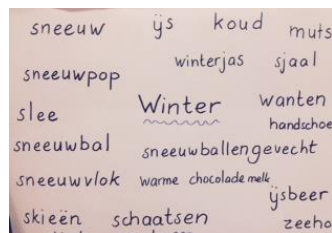 sneeuw ijs koud muts
winterjas sjaal
sneeuwpop
Winter wanten
slee handschoe
sneeuwbal sneeuwballengevecht
sneeuwvlok warme chocolademelk
ijsbeer
skieën schaatsen zeeho